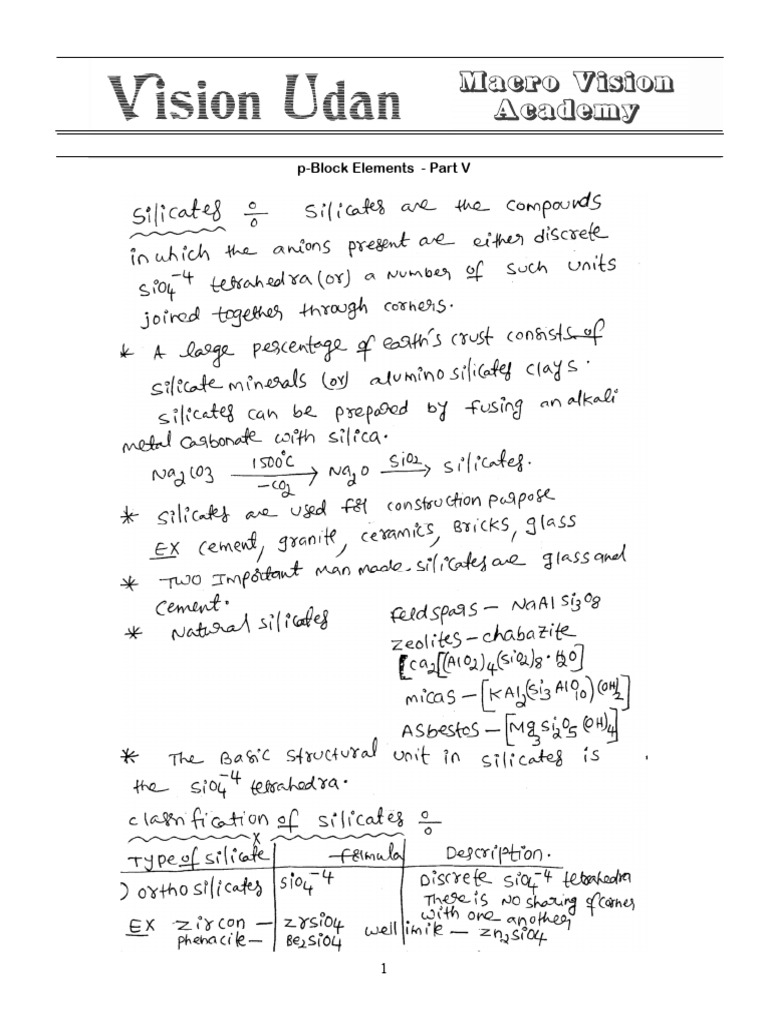 Vision Udan Macro Vision
Academy
p-Block Elements - Part V
Silicates :- Silicates are the compounds
in which the anions present are either discrete
SiO4^-4 tetrahedra (or) a number of such units
joined together through corners.
* A large percentage of earth's crust consists of
silicate minerals (or) alumino silicates clays.
silicates can be prepared by fusing an alkali
metal carbonate with silica.
Na2CO3 —1500°C/-CO2→ Na2O —SiO2→ silicates.
* Silicates are used for construction purpose
EX cement, granite, ceramics, Bricks, glass
* TWO Important man made silicates are glass and
cement.
* Natural silicates
feldspars - NaAlSi3O8
zeolites - chabazite
[Ca2[(AlO2)4(SiO2)8·H2O]
micas - [KAl2(Si3AlO10)(OH)2]
Asbestos - [Mg3Si2O5(OH)4]
* The Basic structural unit in silicates is
the SiO4^-4 tetrahedra.
classification of silicates :-
Type of silicate formula Description.
) ortho silicates SiO4^-4 Discrete SiO4^-4 tetrahedra
There is no sharing of corner
with one another
EX zircon - ZrSiO4
phenacite - Be2SiO4 wellimite - Zn2SiO4
1